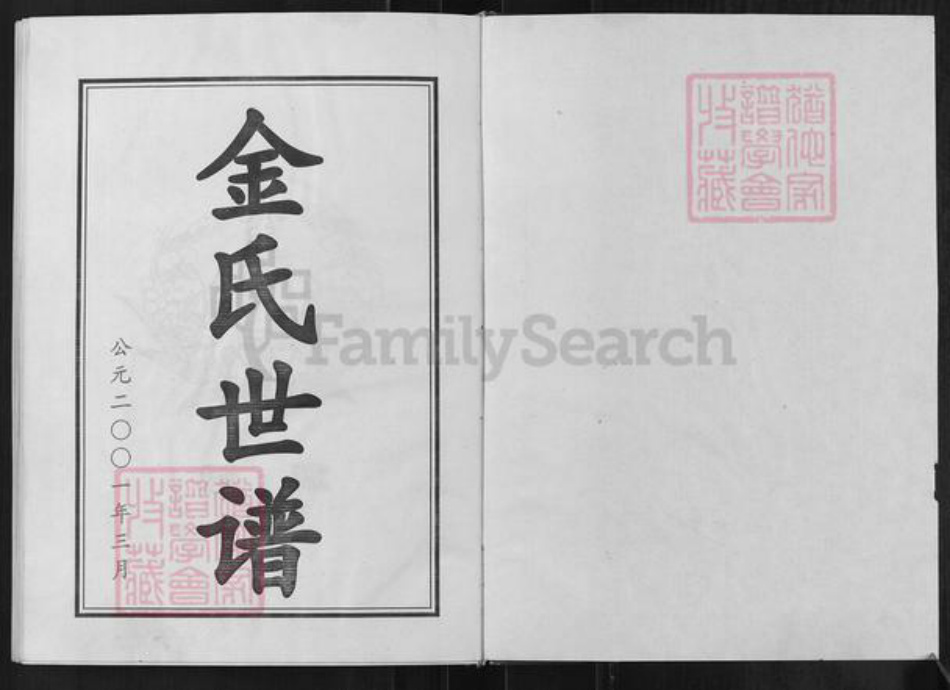 猶他家
譜學會
收藏
金氏世谱
公元二〇〇一年三月
猶他家
譜學會
收藏
FamilySearch